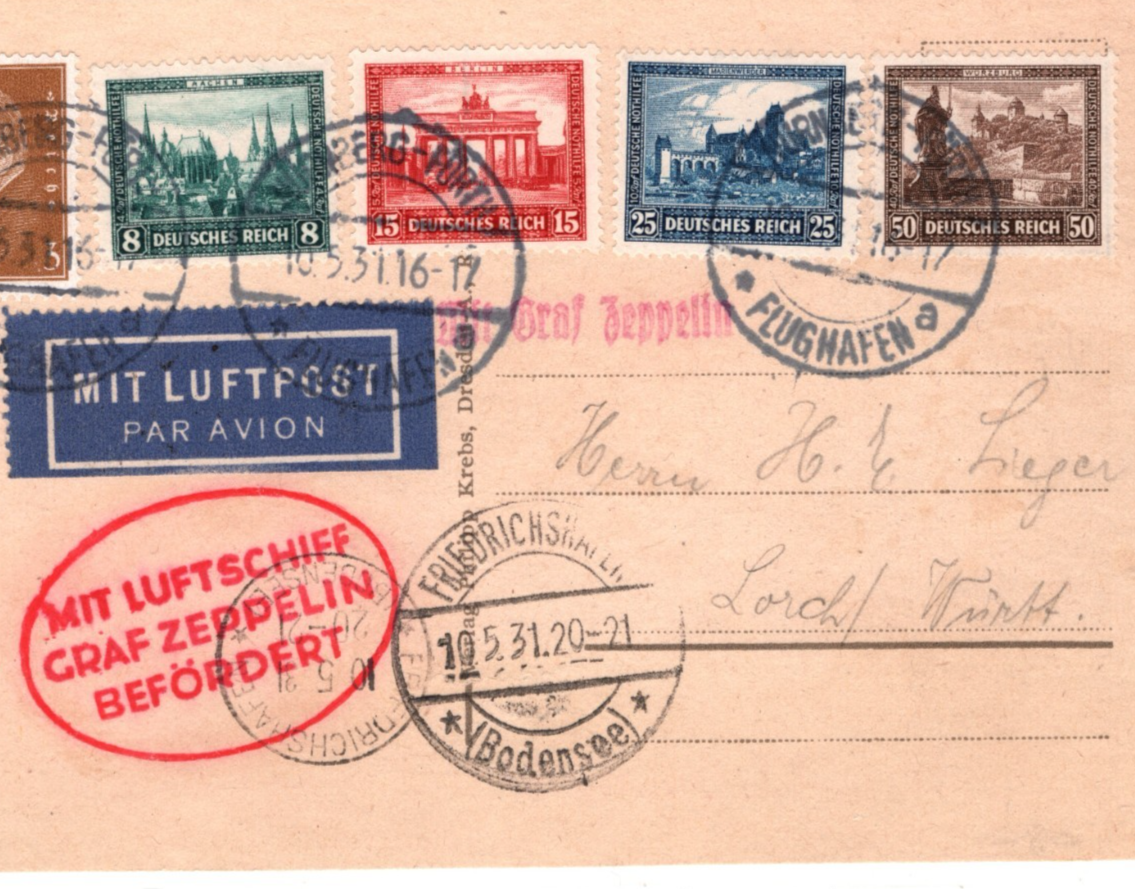 AACHEN
DEUTSCHE NOTHILFE
8 DEUTSCHES REICH 8
BERLIN
DEUTSCHE NOTHILFE
15 DEUTSCHES REICH 15
MARIENWERDER
DEUTSCHE NOTHILFE
25 DEUTSCHES REICH 25
WÜRZBURG
DEUTSCHE NOTHILFE
50 DEUTSCHES REICH 50
3
NÜRNBERG-FÜRTH
10.5.31.16-17
FLUGHAFEN a
16-17
FLUGHAFEN a
Mit Graf Zeppelin
MIT LUFTPOST
PAR AVION
Krebs, Dresden
Herrn H. E. Lieger
Lorch/Württ.
MIT LUFTSCHIFF
GRAF ZEPPELIN
BEFÖRDERT
FRIEDRICHSHAFEN
10.5.31.20-21
(Bodensee)
FRIEDRICHSHAFEN
10.5.31
20-21
(BODENSEE)